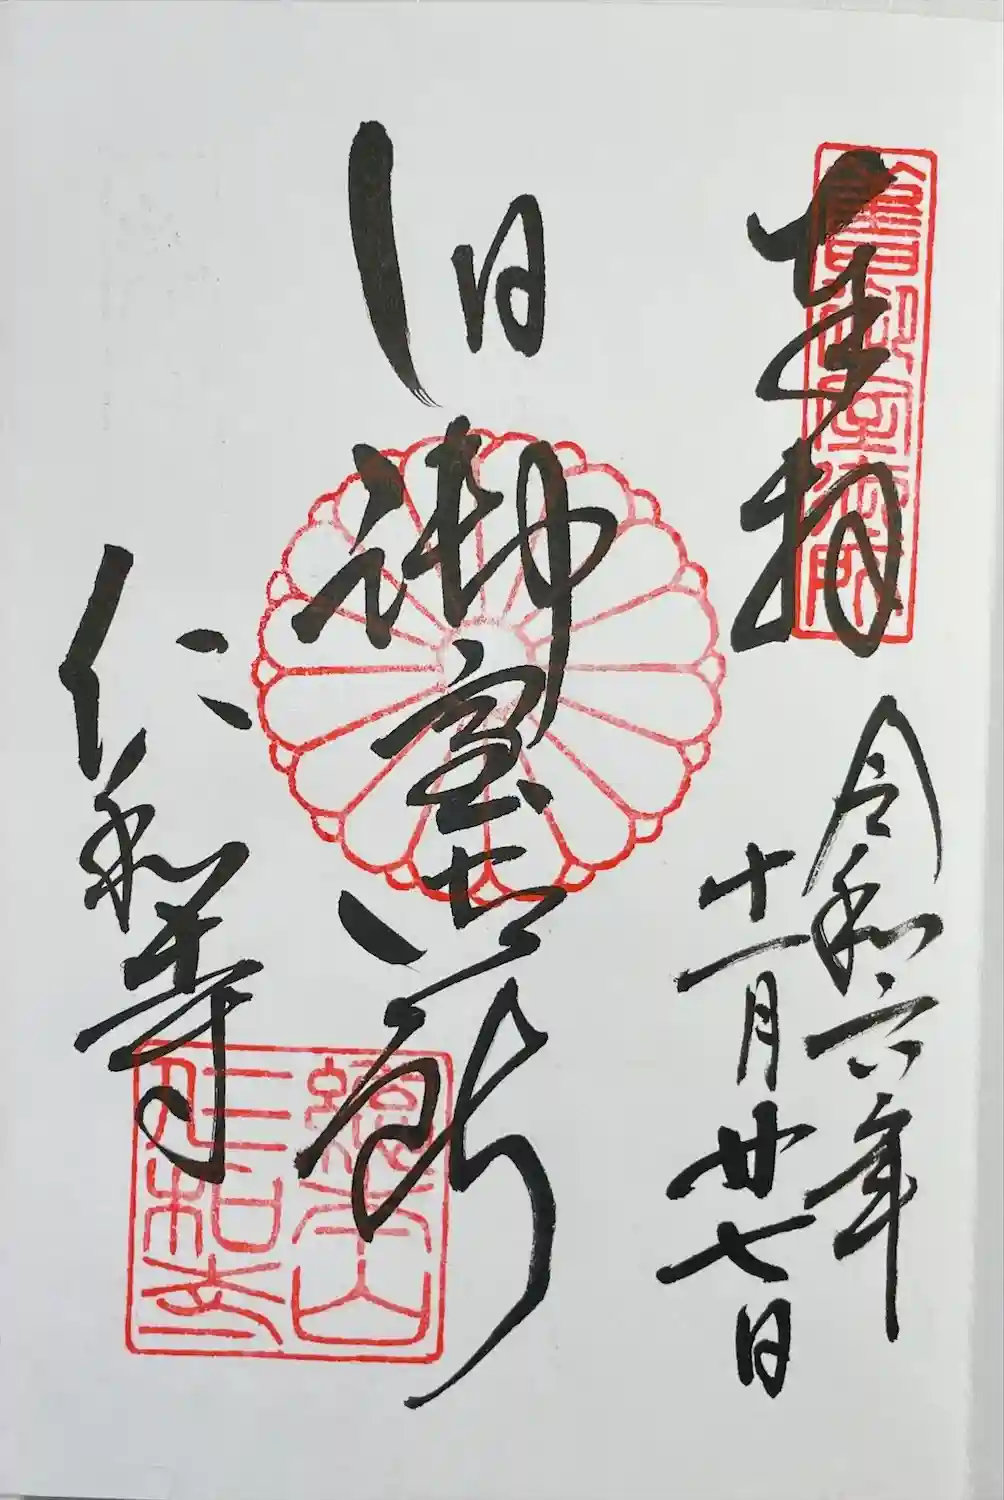 奉拝
舊御室御所
令和六年
十一月廿七日
旧御室御所
仁和寺
總本山
仁和寺